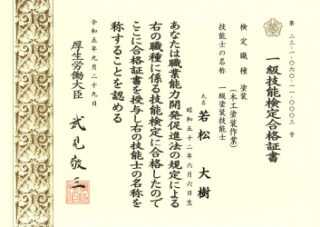 第二三-一-〇六〇-一一-〇〇〇三号
一級技能検定合格証書
検定職種 塗装
(木工塗装作業)
技能士の名称 一級塗装技能士
氏名 若松 大樹
昭和五十二年六月六日生
あなたは職業能力開発促進法の規定による
右の職種に係る技能検定に合格したので
ここに合格証書を授与し右の技能士の名称を
称することを認める
令和五年九月二十九日
厚生労働大臣 武見敬三